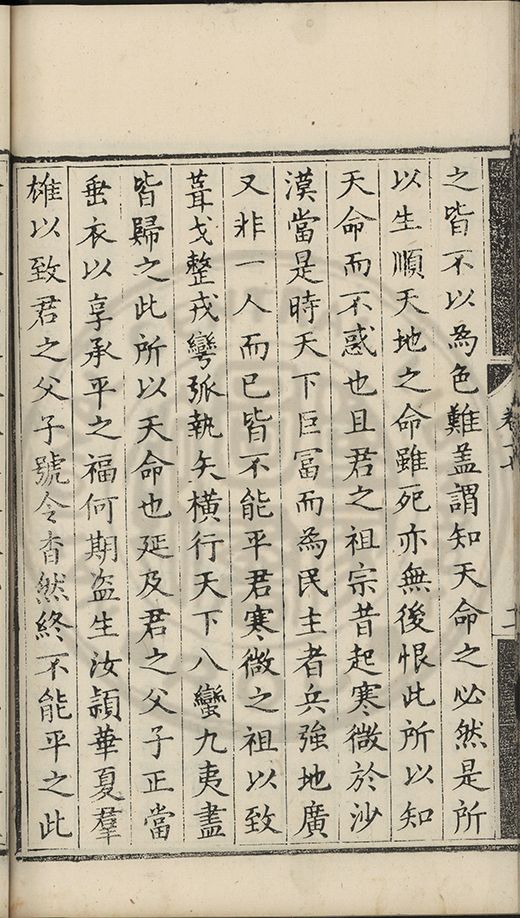 之皆不以為色難盖謂知天命之必然是所
以生順天地之命雖死亦無後恨此所以知
天命而不惑也且君之祖宗昔起寒微於沙
漠當是時天下巨冨而為民主者兵強地廣
又非一人而已皆不能平君寒微之祖以致
葺戈整戎彎弧執矢横行天下八蠻九夷盡
皆歸之此所以天命也延及君之父子正當
垂衣以享承平之福何期盗生汝頴華夏羣
雄以致君之父子號令杳然終不能平之此